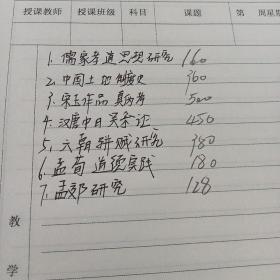 授课教师 授课班级 科目 课题 第 周星期
1. 儒家孝道思想研究 160
2. 中国土地制度史 360
3. 宋玉作品真伪考 500
4. 汉唐中日关系证 450
5. 六朝骈赋研究 380
6. 孟荀道德实践 180
7. 孟郊研究 128
教
学